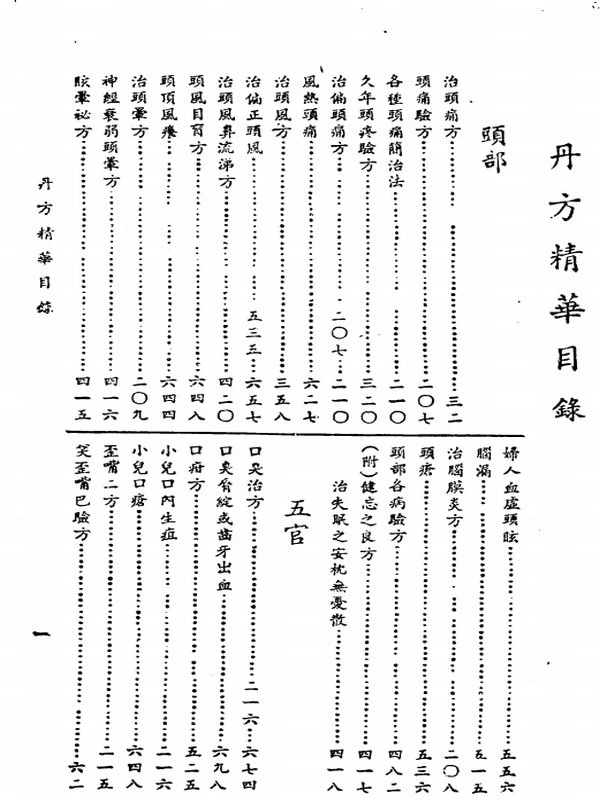 丹方精華目錄
頭部
治頭痛方……三二
頭痛驗方……二〇七
各種頭痛簡治法……二一〇
久年頭疼驗方……三二〇
治偏頭痛方……二〇七 二一〇
風熱頭痛……六二七
治頭風方……三五八
治偏正頭風……五三五 六五七
治頭風鼻流涕方……四二〇
頭風目肓方……六四八
頭頂風癢……六四四
治頭暈方……二〇九
神經衰弱頭暈方……四一六
眩暈祕方……四一五
婦人血虛頭眩……五五六
腦漏……五一五
治腦膜炎方……二〇八
頭瘡……五三六
頭部各病驗方……四八二
(附)健忘之良方……四一七
治失眠之安枕無憂散……四一八
五官
口臭治方……二一六 六七四
口臭脣綻或齒牙出血……六九八
口疳方……五二五
小兒口內生疽……二一六
小兒口瘡……六四八
歪嘴二方……二一五
笑歪嘴巴驗方……六二
丹方精華目錄
一